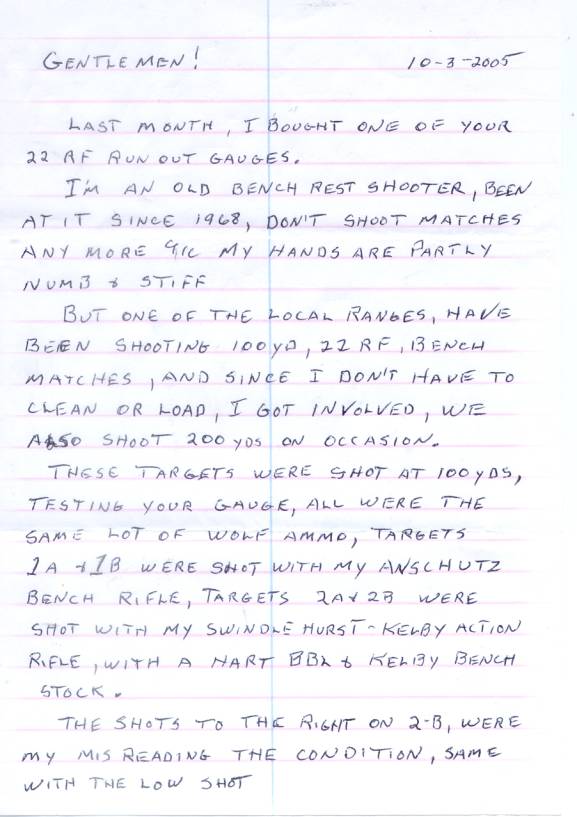 GENTLEMEN! 10-3-2005
LAST MONTH, I BOUGHT ONE OF YOUR
22 RF RUN OUT GAUGES.
I'M AN OLD BENCH REST SHOOTER, BEEN
AT IT SINCE 1968, DON'T SHOOT MATCHES
ANY MORE MY HANDS ARE PARTLY
NUMB & STIFF
BUT ONE OF THE LOCAL RANGES, HAVE
BEEN SHOOTING 100 YD, 22 RF, BENCH
MATCHES, AND SINCE I DON'T HAVE TO
CLEAN OR LOAD, I GOT INVOLVED, WE
ALSO SHOOT 200 YDS ON OCCASION.
THESE TARGETS WERE SHOT AT 100 YDS,
TESTING YOUR GAUGE, ALL WERE THE
SAME LOT OF WOLF AMMO, TARGETS
1A & 1B WERE SHOT WITH MY ANSCHUTZ
BENCH RIFLE, TARGETS 2A & 2B WERE
SHOT WITH MY SWINDLEHURST-KELBY ACTION
RIFLE, WITH A HART BBL & KELBY BENCH
STOCK.
THE SHOTS TO THE RIGHT ON 2-B, WERE
MY MIS READING THE CONDITION, SAME
WITH THE LOW SHOT